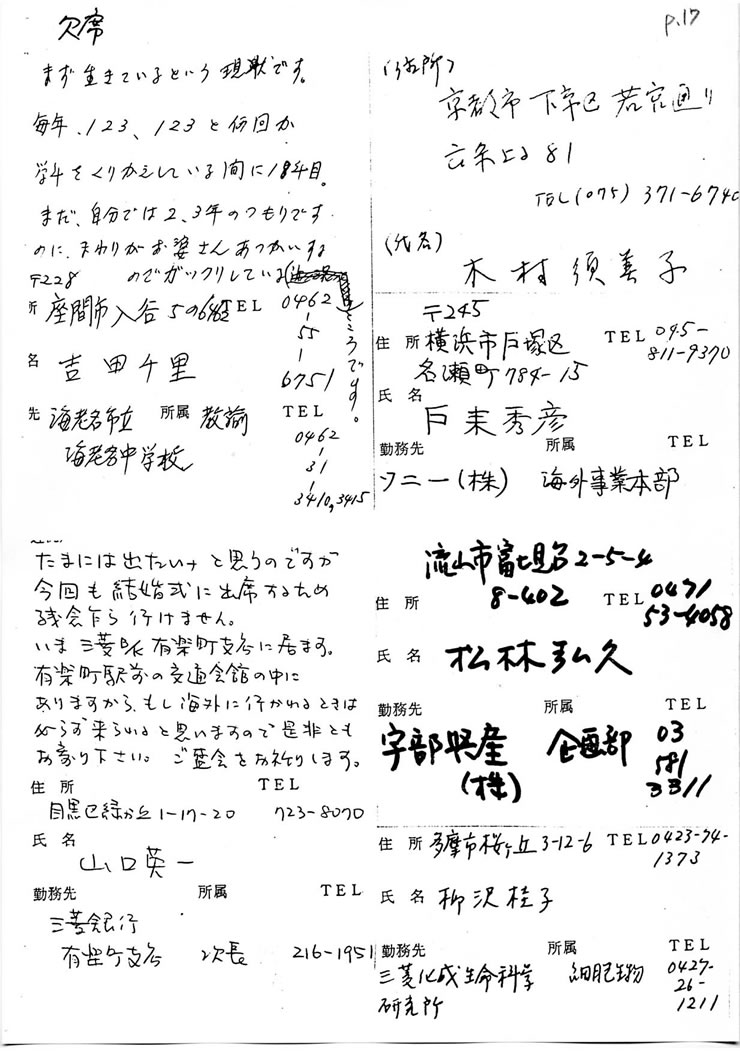 欠席
まず生きているという現状です。
毎年、123、123と何回か
学年をくりかえしている間に18年目。
まだ、自分では2、3年のつもりです
のに、まわりがお婆さんあつかいする
のでガックリしている
ところです。
〒228
所 座間市入谷5の
TEL 0462
-
55
-
6751
名 吉田千里
先 海老名市立 所属 教諭 TEL
海老名中学校
0462
-
31
-
3410,3415
たまには出たいナと思うのですが
今回も結婚式に出席するため
残念乍ら行けません。
いま三菱BK有楽町支店に居ます。
有楽町駅前の交通会館の中に
ありますから、もし海外に行かれるときは
必らず来られると思いますので是非とも
お寄り下さい。ご盛会をお祈りします。
住所 TEL
目黒区緑が丘1-17-20 723-8070
氏名
山口英一
勤務先 所属 TEL
三菱銀行
有楽町支店 次長 216-1951
p.17
(住所)
京都市下京区若宮通り
六条上る81
TEL(075)371-674
(氏名)
木村須美子
〒245
住所 横浜市戸塚区 TEL 045-
名瀬町784-15 811-9370
氏名
戸来秀彦
勤務先 所属 TEL
ソニー(株) 海外事業本部
流山市富士見台2-5-4
住所 8-402 TEL 0471
53-4058
氏名 松林弘久
勤務先 所属 TEL
宇部興産 企画部 03
(株) 581
3311
住所 多摩市桜ヶ丘3-12-6 TEL 0423-74-
1373
氏名 柳沢桂子
勤務先 所属 TEL
三菱化成生命科学 細胞生物 0427-
研究所 26-
1211